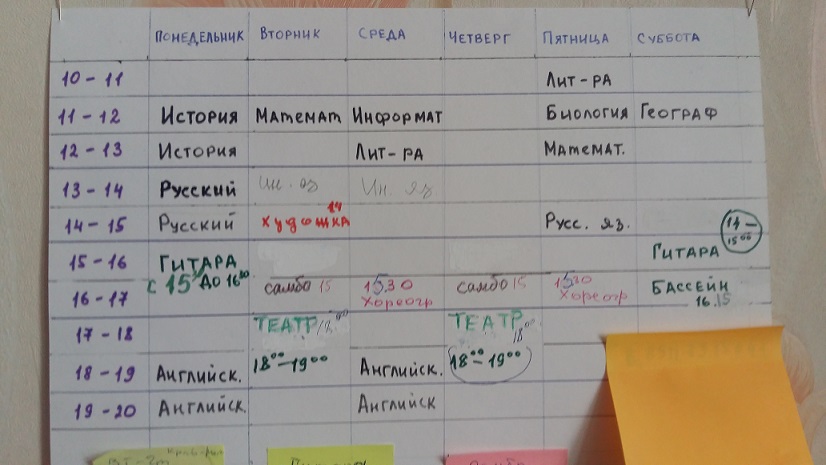 ПОНЕДЕЛЬНИК ВТОРНИК СРЕДА ЧЕТВЕРГ ПЯТНИЦА СУББОТА
10 - 11 Лит-РА
11 - 12 История Математ Информат Биология Географ
12 - 13 История Лит-РА Математ.
13 - 14 Русский Ин. яз Ин. яз
14 - 15 Русский Художка 14 Русс. яз. 14 - 15 00
15 - 16 Гитара Гитара
с 15 до 16
16 - 17 самбо 15 15.30 Хореогр самбо 15 15 30 Хореогр Бассейн 16.15
17 - 18 Театр Театр 18 00
18 - 19 Английск. 18 00 - 19 00 Английск. 18 00 - 19 00
19 - 20 Английск. Английск